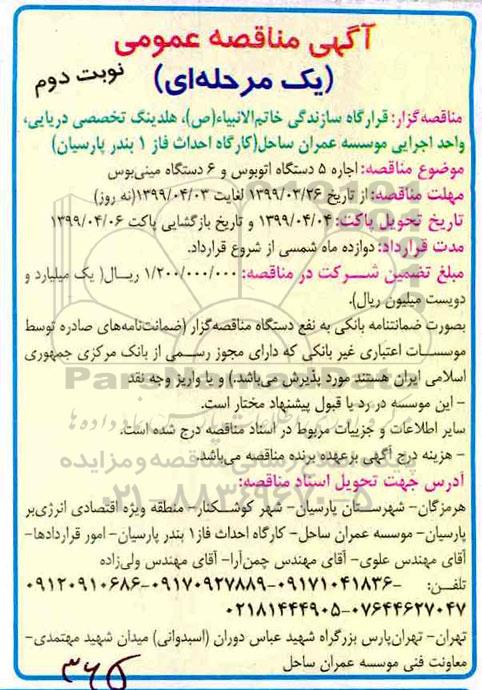 آگهی مناقصه عمومی
(یک مرحله‌ای)
نوبت دوم
مناقصه‌گزار: قرارگاه سازندگی خاتم‌الانبیاء(ص)، هلدینگ تخصصی دریایی،
واحد اجرایی موسسه عمران ساحل(کارگاه احداث فاز ۱ بندر پارسیان)
موضوع مناقصه: اجاره ۵ دستگاه اتوبوس و ۶ دستگاه مینی‌بوس
مهلت مناقصه: از تاریخ ۱۳۹۹/۰۳/۲۶ لغایت ۱۳۹۹/۰۴/۰۳(نه روز)
تاریخ تحویل پاکت: ۱۳۹۹/۰۴/۰۴ و تاریخ بازگشایی پاکت ۱۳۹۹/۰۴/۰۶
مدت قرارداد: دوازده ماه شمسی از شروع قرارداد.
مبلغ تضمین شرکت در مناقصه: ۱/۲۰۰/۰۰۰/۰۰۰ ریال( یک میلیارد و
دویست میلیون ریال).
بصورت ضمانتنامه بانکی به نفع دستگاه مناقصه‌گزار (ضمانت‌نامه‌های صادره توسط
موسسات اعتباری غیر بانکی که دارای مجوز رسمی از بانک مرکزی جمهوری
اسلامی ایران هستند مورد پذیرش می‌باشد.) و یا واریز وجه نقد
- این موسسه در رد یا قبول پیشنهاد مختار است.
سایر اطلاعات و جزییات مربوط در اسناد مناقصه درج شده است.
- هزینه درج آگهی برعهده برنده مناقصه می‌باشد.
آدرس جهت تحویل اسناد مناقصه:
هرمزگان- شهرستان پارسیان- شهر کوشکنار- منطقه ویژه اقتصادی انرژی‌بر
پارسیان- موسسه عمران ساحل- کارگاه احداث فاز۱ بندر پارسیان- امور قراردادها-
آقای مهندس علوی- آقای مهندس چمن‌آرا- آقای مهندس ولی‌زاده
تلفن: ۰۹۱۷۱۰۴۱۸۳۶-۰۹۱۷۰۹۲۷۸۸۹-۰۹۱۲۰۹۱۰۶۸۶-
۰۷۶۴۴۶۲۷۰۴۷-۰۲۱۸۱۴۴۴۹۰۵
تهران- تهران‌پارس بزرگراه شهید عباس دوران (اسبدوانی) میدان شهید مهتمدی-
معاونت فنی موسسه عمران ساحل
ParsNamadData
۰۲۱-۸۸۳۴۹۶۷۰-۵